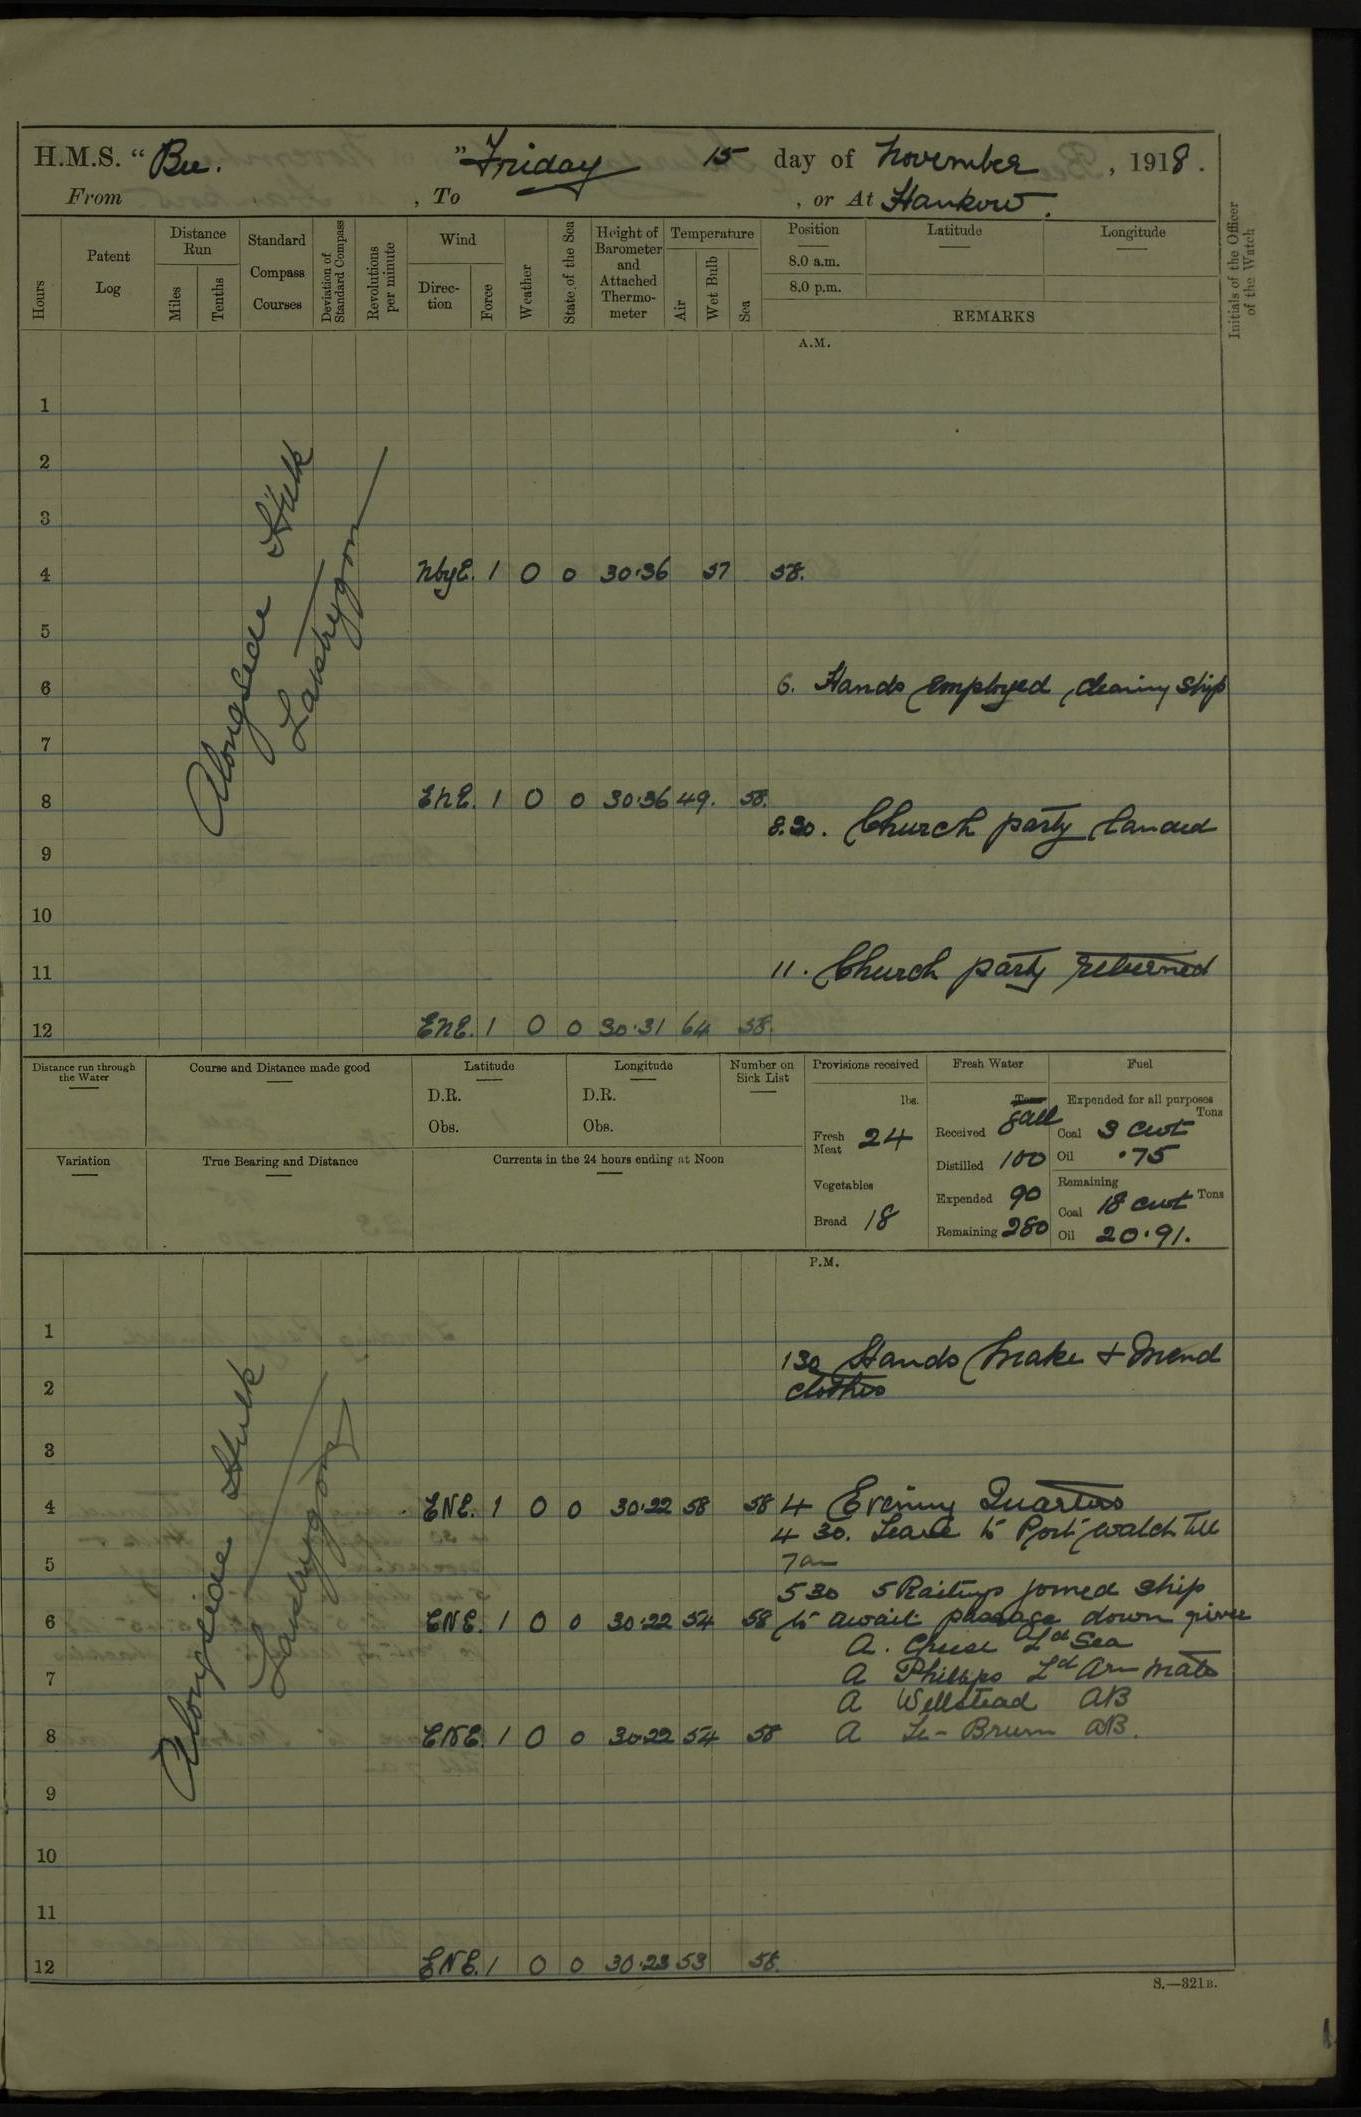 H.M.S. “ Bee. ” Friday 15 day of November , 1918 .
From , To , or At Hankow.
Hours
Patent Log
Distance Run
Miles
Tenths
Standard Compass Courses
Deviation of Standard Compass
Revolutions per minute
Wind
Direction
Force
Weather
State of the Sea
Height of Barometer and Attached Thermometer
Temperature
Air
Wet Bulb
Sea
Position
8.0 a.m.
8.0 p.m.
Latitude
Longitude
REMARKS
Initials of the Officer of the Watch
A.M.
1
2
3
Alongside Hulk
4 NbyE. 1 0 0 30.36 57 58.
5
6 6. Hands employed cleaning ship
7
8 ENE. 1 0 0 30.36 49. 58.
8.30. Church party landed
9
10
11 11. Church party returned
12 ENE. 1 0 0 30.31 64 58.
Distance run through the Water
Course and Distance made good
Latitude
D.R.
Obs.
Longitude
D.R.
Obs.
Number on Sick List
Variation
True Bearing and Distance
Currents in the 24 hours ending at Noon
Provisions received
lbs.
Fresh Meat 24
Vegetables
Bread 18
Fresh Water
Tons
Gall
Received
Distilled 100
Expended 90
Remaining 280
Fuel
Expended for all purposes
Tons
Coal 3 cwt
Oil .75
Remaining
Coal 18 cwt Tons
Oil 20.91.
P.M.
1
130 Hands make & mend
2 clothes
3
Alongside Hulk
4 ENE. 1 0 0 30.22 58 58 4 Evening Quarters
4 30. Leave to Port watch till
5 7am
5 30 5 Ratings joined ship
6 ENE. 1 0 0 30.22 54 58 to await passage down river
A. Ld Sea
7 A Phillips Ld Arm Mate
A Wellstead AB
8 ENE. 1 0 0 30.22 54 58 A Le-Brum AB.
9
10
11
12 ENE. 1 0 0 30.23 53 58.
S.—321B.